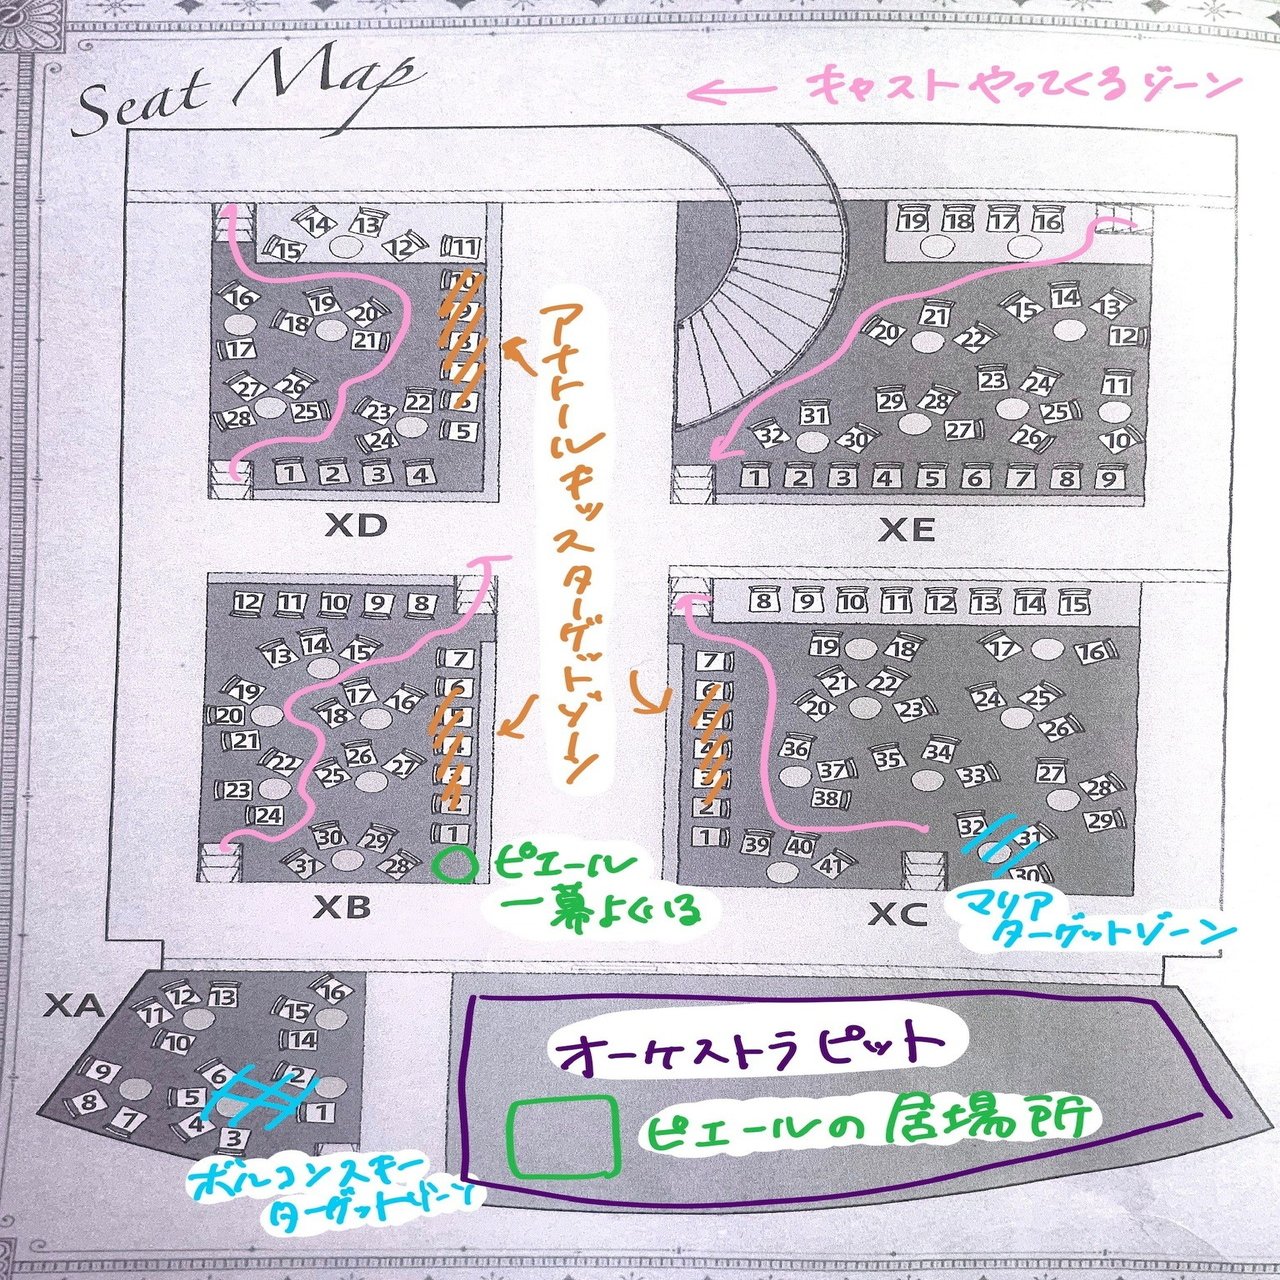 Seat Map
← キャストやってくるゾーン
14 13
15 12 11
10
9
8
7
16 19 20
18 21
17
27 26 22
28 25 23
24 5
1 2 3 4
XD
アナトールキッスターゲットゾーン
19 18 17 16
21 15 14 13
20 22 12
23 24 11
31 29 28 25
32 30 27 26 10
1 2 3 4 5 6 7 8 9
XE
12 11 10 9 8
13 14 15 7
6
19 17 16
20 18
21
22 26 27
23 25
24 2
30 29 1
31 28
XB
ピエール
一幕よくいる
8 9 10 11 12 13 14 15
19 18 17 16
7
6
21 22 24 25
20 23 26
5
4
3
36 35 34 27
37 33 28
38 29
2
1 39 40 32 31
41 30
XC
マリア
ターゲットゾーン
XA
12 13 16
11 15
10 14
9 6 2
8 5 1
7 4
3
ボルコンスキー
ターゲットゾーン
オーケストラピット
ピエールの居場所